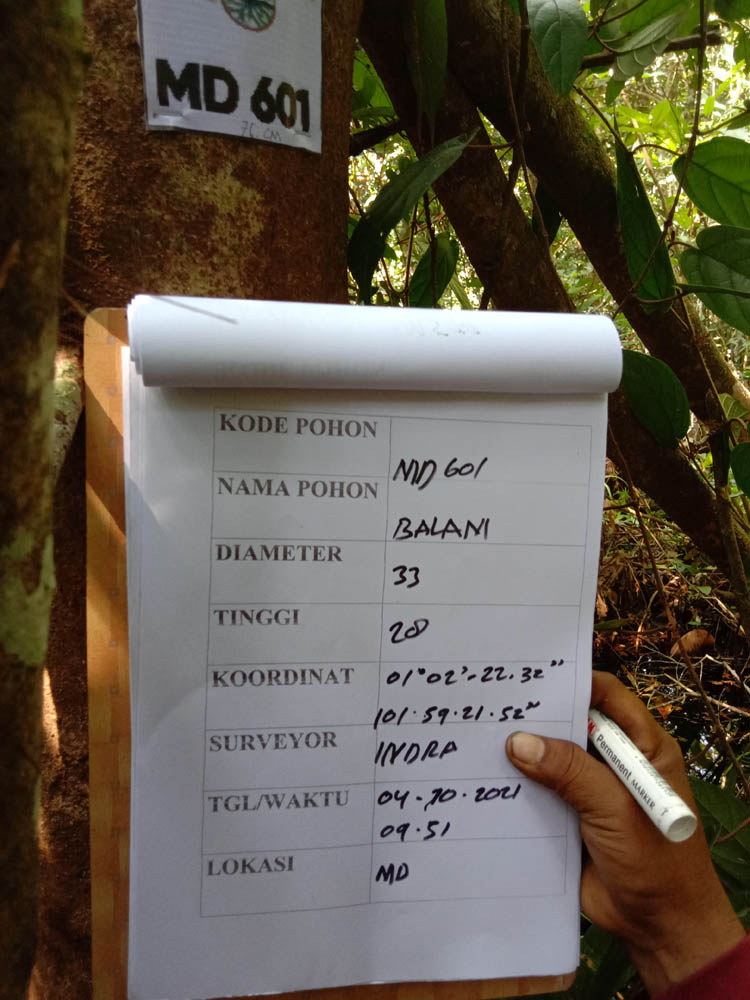 MD 601
76 cm
KODE POHON
MD 601
NAMA POHON
BALANI
DIAMETER
33
TINGGI
28
KOORDINAT
01°02'-22.32"
101.59.21.52"
SURVEYOR
INDRA
TGL/WAKTU
04-10-2021
09.51
LOKASI
MD
Permanent MARKER